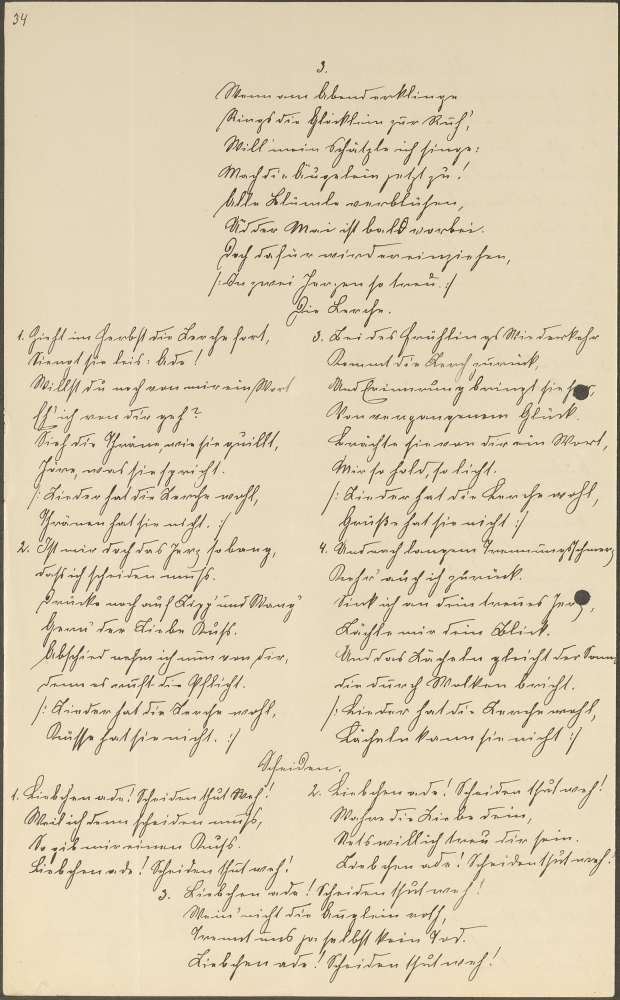 34
3.
Wenn am Abend erklinge
Rings die Glöcklein zur Ruh',
Will mein Schätzle ich singe:
Mach die Äugelein jetzt zu!
Alle Blümle verblühen,
Und der Mai ist bald vorbei.
Doch dafür wird er einziehen,
/: In zwei Herzen so treu. :/
Die Lerche.
1. Zieht im Herbst die Lerche fort,
Singt sie leis: Ade!
Willst du noch von mir ein Wort
Eh' ich von dir geh?
Sieh die Thräne, wie sie quillt,
Höre, was sie spricht.
/: Lieder hat die Lerche wohl,
Thränen hat sie nicht. :/
2. Ist mir doch das Herz so bang,
daß ich scheiden muß.
Drücke noch auf Lipp' und Wang'
Gern' der Liebe Kuß.
Abschied nehm ich nun von dir,
denn es ruft die Pflicht.
/: Lieder hat die Lerche wohl,
Küsse hat sie nicht. :/
3. Bei des Frühlings Wiederkehr
Kommt die Lerch zurück,
Und Erinnerung bringt sie her,
Von vergangenem Glück.
Brächte sie von dir ein Wort,
Mir so hold, so licht.
/: Lieder hat die Lerche wohl,
Grüße hat sie nicht :/
4. Und nach langem Trennungsschmerz
Kehr' auch ich zurück.
Sink ich an dein treues Herz,
Lächle mir dein Blick.
Und das Lächeln gleicht der Sonne,
die durch Wolken bricht.
/: Lieder hat die Lerche wohl,
Lächeln kann sie nicht :/
Scheiden.
1. Liebchen ade! Scheiden thut Weh!
Weil ich denn scheiden muß,
So gib mir einen Kuß.
Liebchen ade! Scheiden thut weh!
2. Liebchen ade! Scheiden thut weh!
Wahre die Liebe dein,
Stets will ich treu dir sein.
Liebchen ade! Scheiden thut weh!
3. Liebchen ade! Scheiden thut weh!
Wein' nicht die Äuglein roth,
Trennt uns ja selbst kein Tod.
Liebchen ade! Scheiden thut weh!